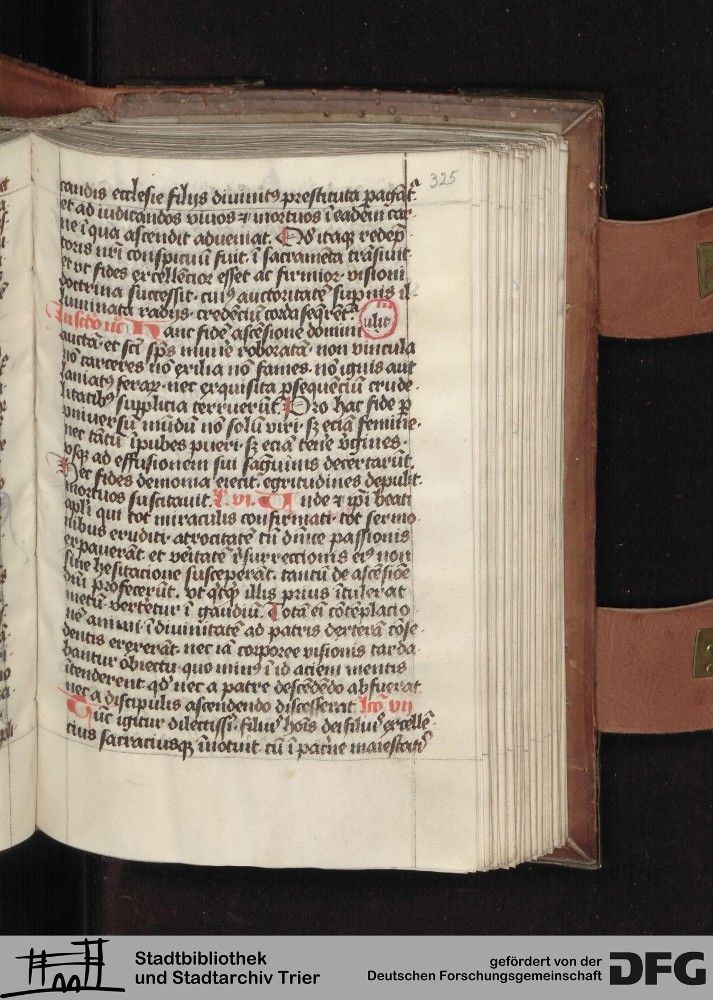 325
candis ecclesie filijs diuinit9 prestituta pagāt᷑
et ad iudicandos viuos ⁊ mortuos ī eadem car-
ne ī qua ascendit adueniat. Qd itaq3 redēp
toris nr̄i conspicuū fuit. ī sacramēta trāsiuit
et vt fides excellēcior esset ac firmior. visioni
doctrina successit. cui9 auctoritatē supnis il-
luminata radijs. credēciū corda seqrēt᷑.
Hanc fidē ascēsione domini
auctā. et sc̄i sp̄s mūne roboratā. non vincula
nō carceres nō exilia nō fames. nō ignis aut
laniat9 feraꝝ. nec exquisita ꝑsequēciū crude-
litatib9 supplicia terruerūt. Pro hac fide ꝑ
vniuersū mūdū nō solū viri. s3 eciā femine.
nec tātū īpubes pueri. s3 eciā tene v̄gines.
vsq3 ad effusionem sui sāguinis decertarūt.
Hec fides demonia eiecit. egritudines depulit.
mortuos suscitauit. L. vi. Vnde ⁊ ip̄i beati
apl̄i qui tot miraculis confirmati. tot sermo-
nibus eruditi. atrocitatē tn̄ dn̄ice passionis
expauerāt. et veritatē r̄surrectionis ei9 non
sine hesitacione susceperāt. tantū de ascēsiōe
dn̄i profecerūt. vt q̄cq3 illis prius ītulerat
metū. verteretur ī gaudiū. Totā eī cōtēplacio
nē animi ī diuinitatē ad patris dexterā cōse-
dentis erexerāt. nec iā corporee visionis tarda-
bantur obiectu. quo min9 ī id aciem mentis
ītenderent. qd nec a patre descēdēdo abfuerat
nec a discipulis ascendendo discesserat lc̄o vij
Tūc igitur dilectissi. filius hoīs dei filius excellē-
cius sacraciusq3 īnotuit. cū ī patr̄ne maiestatis
Stadtbibliothek
und Stadtarchiv Trier
gefördert von der
Deutschen Forschungsgemeinschaft
DFG